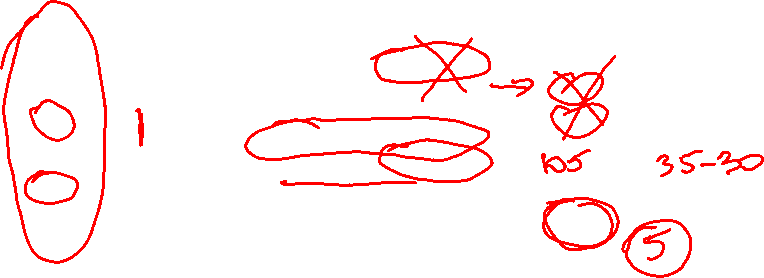 1
105 35-30
5